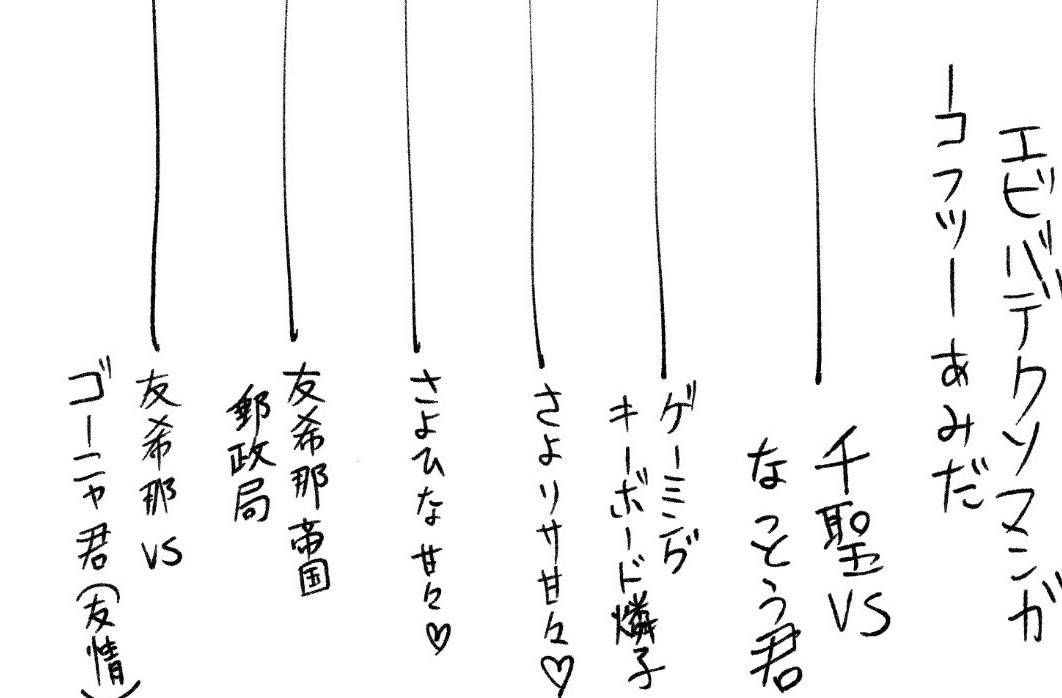 エビバデクソマンガ
ーコフツーあみだ
千聖VS
なっとう君
ゲーミング
キーボード燐子
さよリサ甘々♡
さよひな甘々♡
友希那帝国
郵政局
友希那VS
ゴーニャ君(友情)